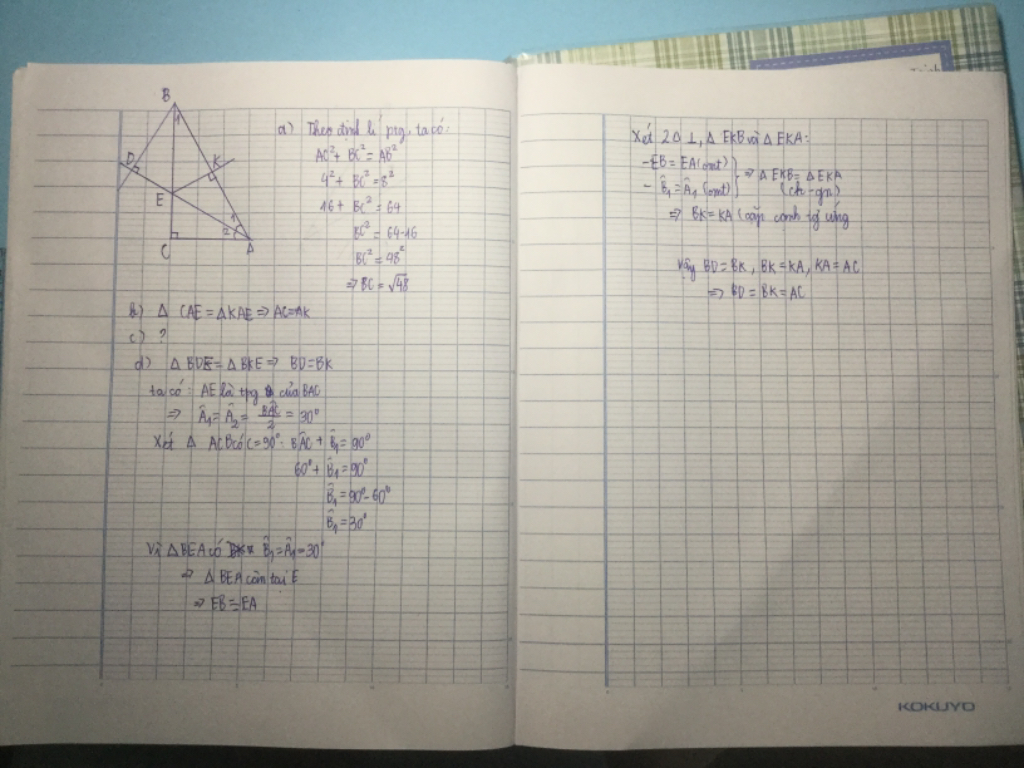 B
1
D
K
E
1
2
C
A
a) Theo định lí pyg, ta có:
AC² + BC² = AB²
4² + BC² = 8²
16 + BC² = 64
BC² = 64-16
BC² = 48²
⇒ BC = √48
b) Δ CAE = ΔKAE ⇒ AC=AK
c) ?
d) Δ BDE = Δ BKE ⇒ BD=BK
ta có: AE là tpg của BAC
⇒ Â₁ = Â₂ = BÂC/2 = 30°
Xét Δ ACB có C = 90°: BÂC + B̂₁ = 90°
60° + B̂₁ = 90°
B̂₁ = 90° - 60°
B̂₁ = 30°
Vì Δ BEA có B̂₁ = Â₁ = 30°
⇒ Δ BEA cân tại E
⇒ EB = EA
Xét 2Δ ⊥, Δ EKB và Δ EKA:
- EB = EA (cmt)
- B̂₁ = Â₁ (cmt)
⇒ Δ EKB = Δ EKA
(ch-gn)
⇒ BK = KA (cặp cạnh tg ứng
Vậy BD = BK, BK = KA, KA = AC
⇒ BD = BK = AC
KOKUYO